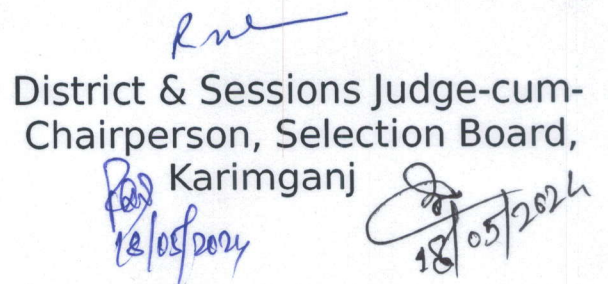 District & Sessions Judge-cum-
Chairperson, Selection Board,
Karimganj
18/05/2024
18/05/2024